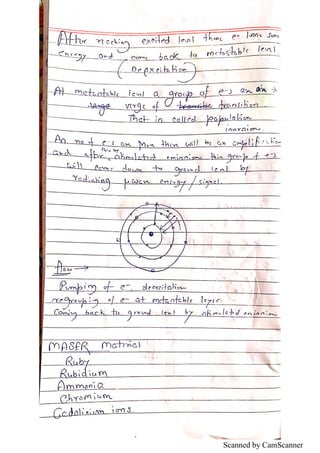 After reaching excited level these e- loose some
energy and come back to metastable level
(Depxcitation)
At metastable level a group of e-s are on
verge of transition
That is called population
inversion.
As no of e-s are more there will be an amplification
and after this by stimulated emission this group of e-s
will come down to ground level by
radiating power energy / signal.
Pumping of e-, deexcitation
regrouping of e- at metastable layer
Coming back to ground level by stimulated emission
MASER Material
Ruby
Rubidium
Ammonia
Chromium
Gadolinium ions.
Scanned by CamScanner